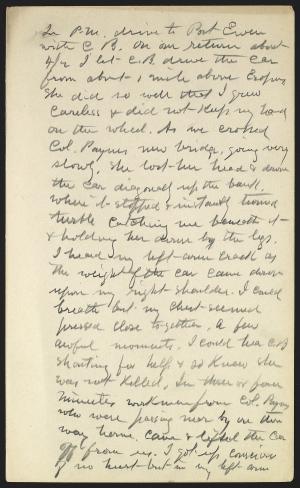 In P.M. drive to Port Ewen
with C.B. On our return about
4 1/2 I let C.B. drive the car
from about 1 mile above Esopus
She did so well that I grew
careless & did not keep my hand
on the wheel. As we crossed
Col. Paynes new bridge, going very
slowly, she lost her head & drove
the car diagonally up the bank,
where it stopped & instantly turned
turtle catching me beneath it
& holding her down by the legs.
I heard my left arm crack as
the weight of the car came down
upon my right shoulder. I could
breath but my chest seemed
pressed close together. A few
awful moments. I could hear C.B.
shouting for help & so knew she
was not killed. In three or four
minutes workmen from Col. Paynes
who were passing near by on their
way home came & lifted the car
off from us. I got up conscious
of no hurt but in my left arm